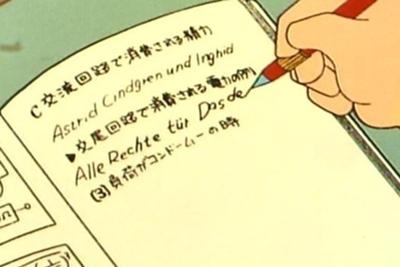 C 交流回路で消費される精力
Astrid Cindgren und Inghid
▶交尾回路で消費される電力の例
Alle Rechte für Dasde
(3)負荷がコンドームーの時